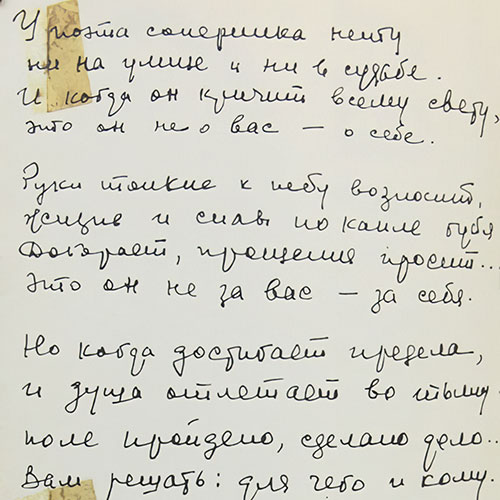 У поэта соперника нету
ни на улице и ни в судьбе.
И когда он кричит всему свету,
это он не о вас — о себе.
Руки тонкие к небу возносит,
жизнь и силы по капле губя.
Догорает, прощения просит...
Это он не за вас — за себя.
Но когда достигает предела,
и душа отлетает во тьму.
поле пройдено, сделано дело...
Вам решать: для чего и кому.